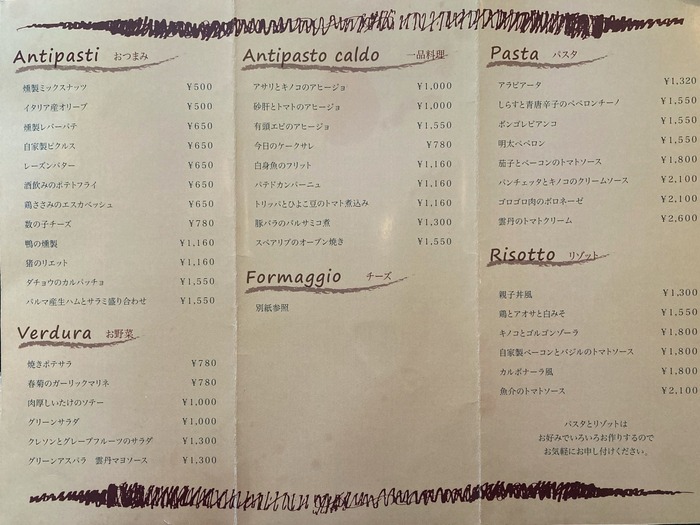 Antipasti おつまみ
燻製ミックスナッツ ¥500
イタリア産オリーブ ¥500
燻製レバーパテ ¥650
自家製ピクルス ¥650
レーズンバター ¥650
酒飲みのポテトフライ ¥650
鶏ささみのエスカベッシュ ¥650
数の子チーズ ¥780
鴨の燻製 ¥1,160
猪のリエット ¥1,160
ダチョウのカルパッチョ ¥1,550
パルマ産生ハムとサラミ盛り合わせ ¥1,550
Verdura お野菜
焼きポテサラ ¥780
春菊のガーリックマリネ ¥780
肉厚しいたけのソテー ¥1,000
グリーンサラダ ¥1,000
クレソンとグレープフルーツのサラダ ¥1,300
グリーンアスパラ 雲丹マヨソース ¥1,300
Antipasto caldo 一品料理
アサリとキノコのアヒージョ ¥1,000
砂肝とトマトのアヒージョ ¥1,000
有頭エビのアヒージョ ¥1,550
今日のケークサレ ¥780
白身魚のフリット ¥1,160
パテドカンパーニュ ¥1,160
トリッパとひよこ豆のトマト煮込み ¥1,160
豚バラのバルサミコ煮 ¥1,300
スペアリブのオーブン焼き ¥1,550
Formaggio チーズ
別紙参照
Pasta パスタ
アラビアータ ¥1,320
しらすと青唐辛子のペペロンチーノ ¥1,550
ボンゴレビアンコ ¥1,550
明太ペペロン ¥1,550
茄子とベーコンのトマトソース ¥1,800
パンチェッタとキノコのクリームソース ¥2,100
ゴロゴロ肉のボロネーゼ ¥2,100
雲丹のトマトクリーム ¥2,600
Risotto リゾット
親子丼風 ¥1,300
鶏とアオサと白みそ ¥1,550
キノコとゴルゴンゾーラ ¥1,800
自家製ベーコンとバジルのトマトソース ¥1,800
カルボナーラ風 ¥1,800
魚介のトマトソース ¥2,100
パスタとリゾットは
お好みでいろいろお作りするので
お気軽にお申し付けください。